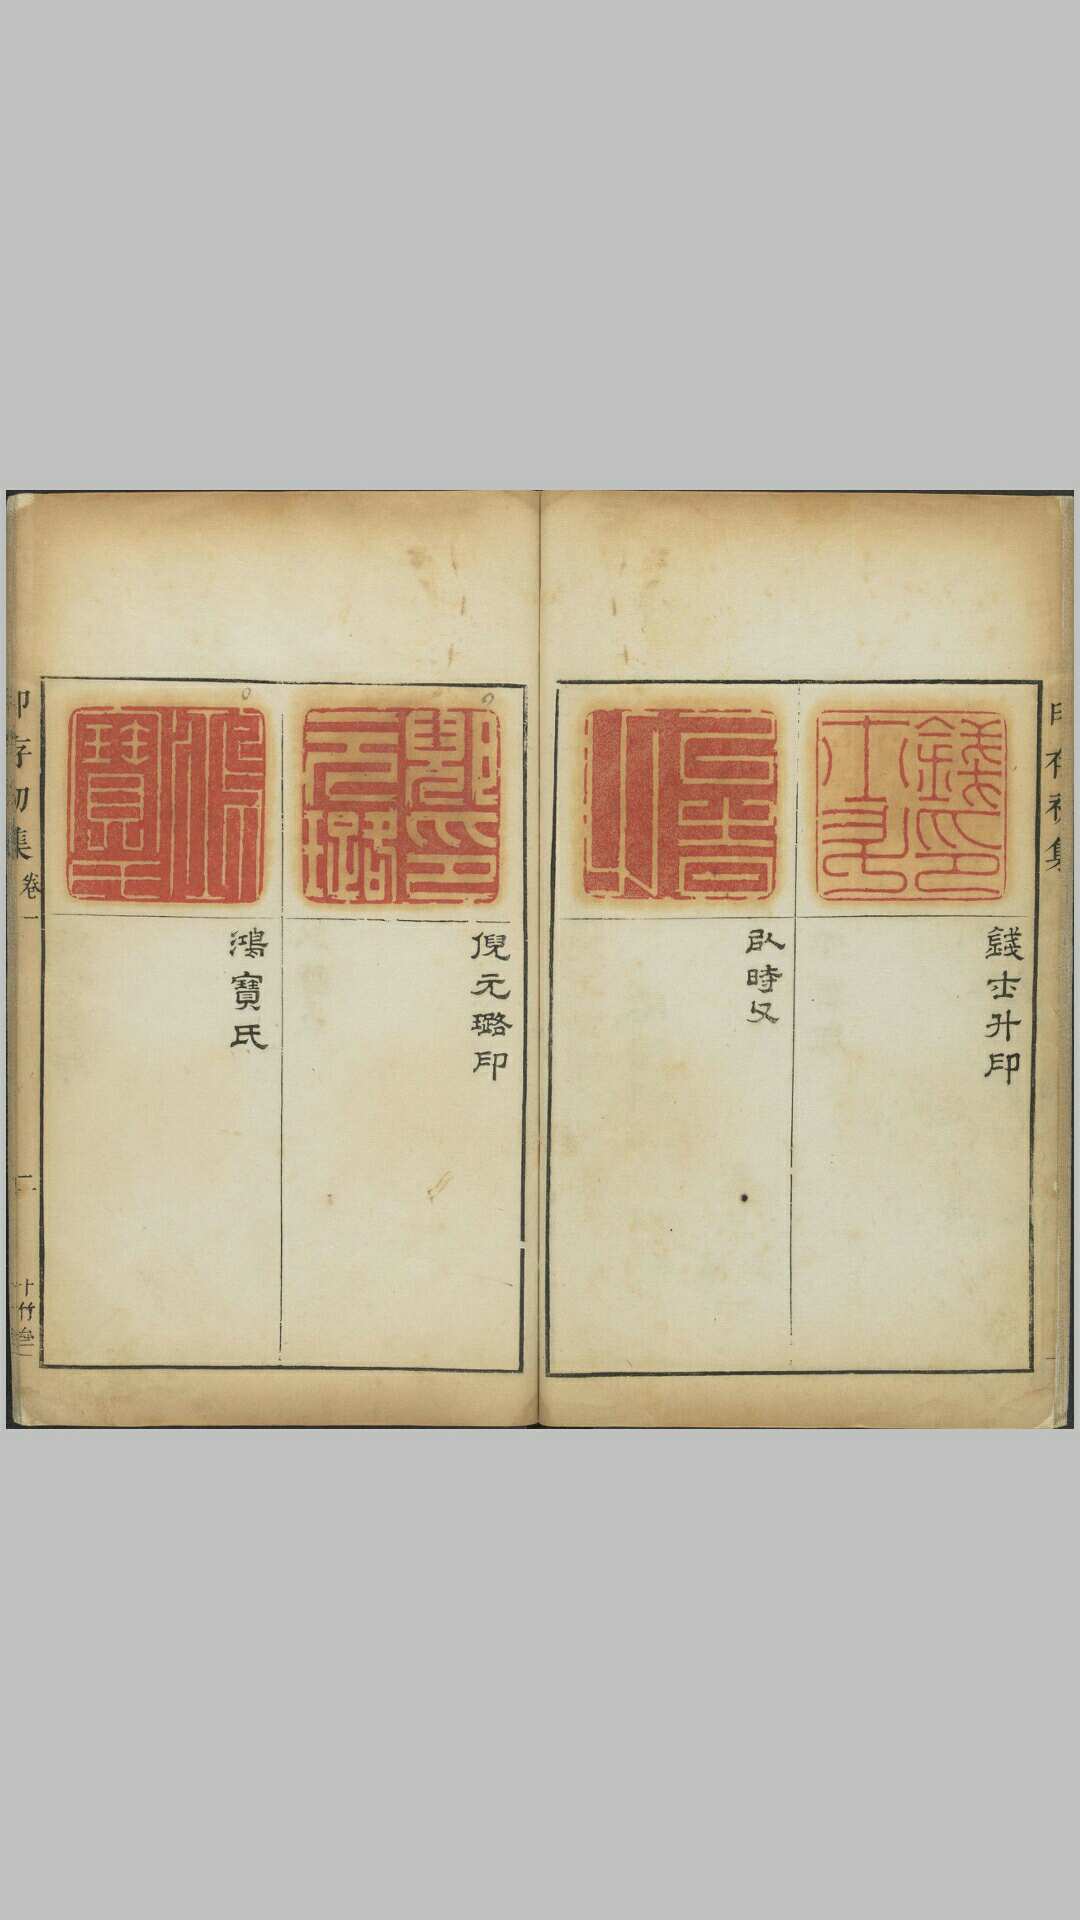 錢士升印
以時又
倪元璐印
鴻寶氏
印存初集
卷一
二
十竹齋